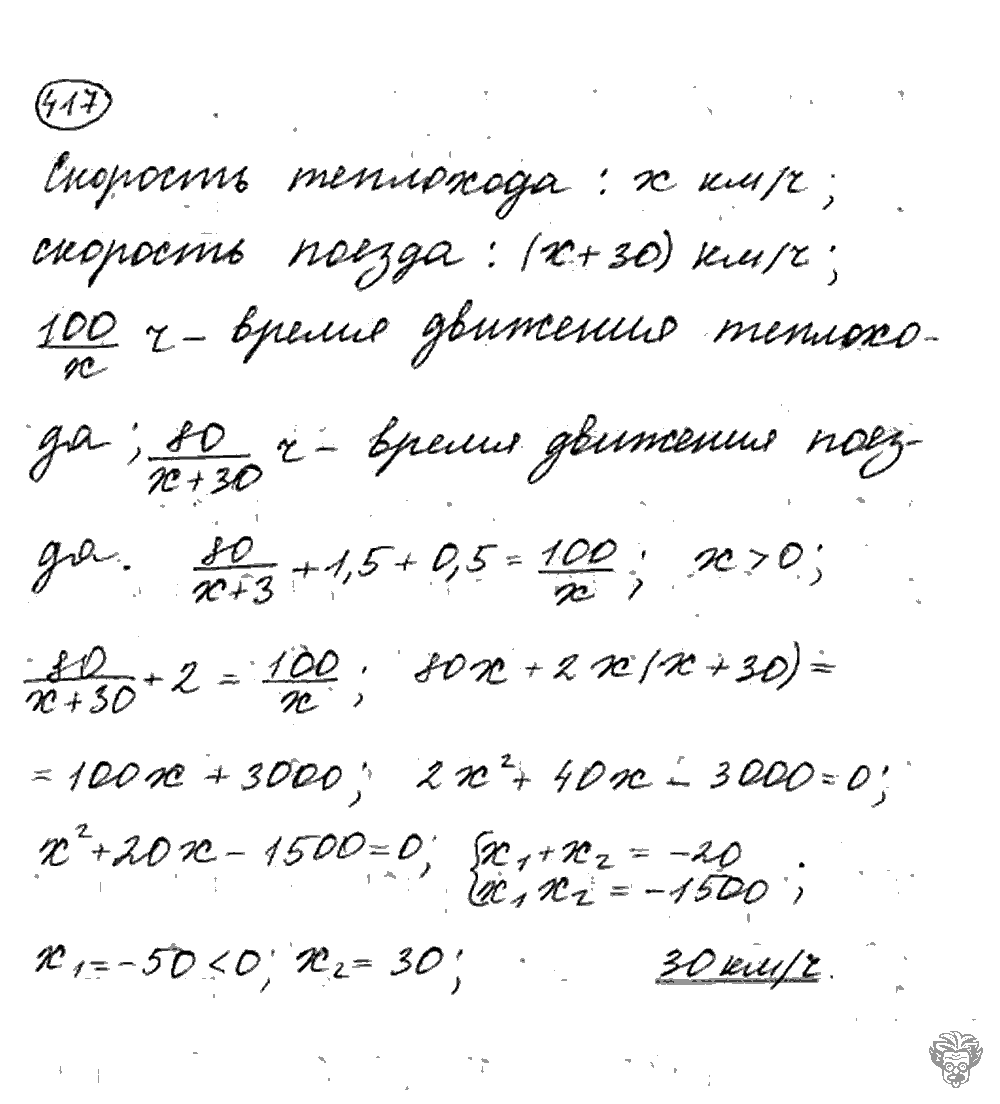 417
Скорость теплохода : x км/ч;
скорость поезда : (x+30) км/ч;
100/x ч – время движения теплохо-
да; 80/(x+30) ч – время движения поез-
да. 80/(x+3) + 1,5 + 0,5 = 100/x; x > 0;
80/(x+30) + 2 = 100/x; 80x + 2x(x+30) =
= 100x + 3000; 2x² + 40x – 3000 = 0;
x² + 20x – 1500 = 0; { x₁ + x₂ = –20
{ x₁ x₂ = –1500 ;
x₁ = –50 < 0; x₂ = 30; 30 км/ч.